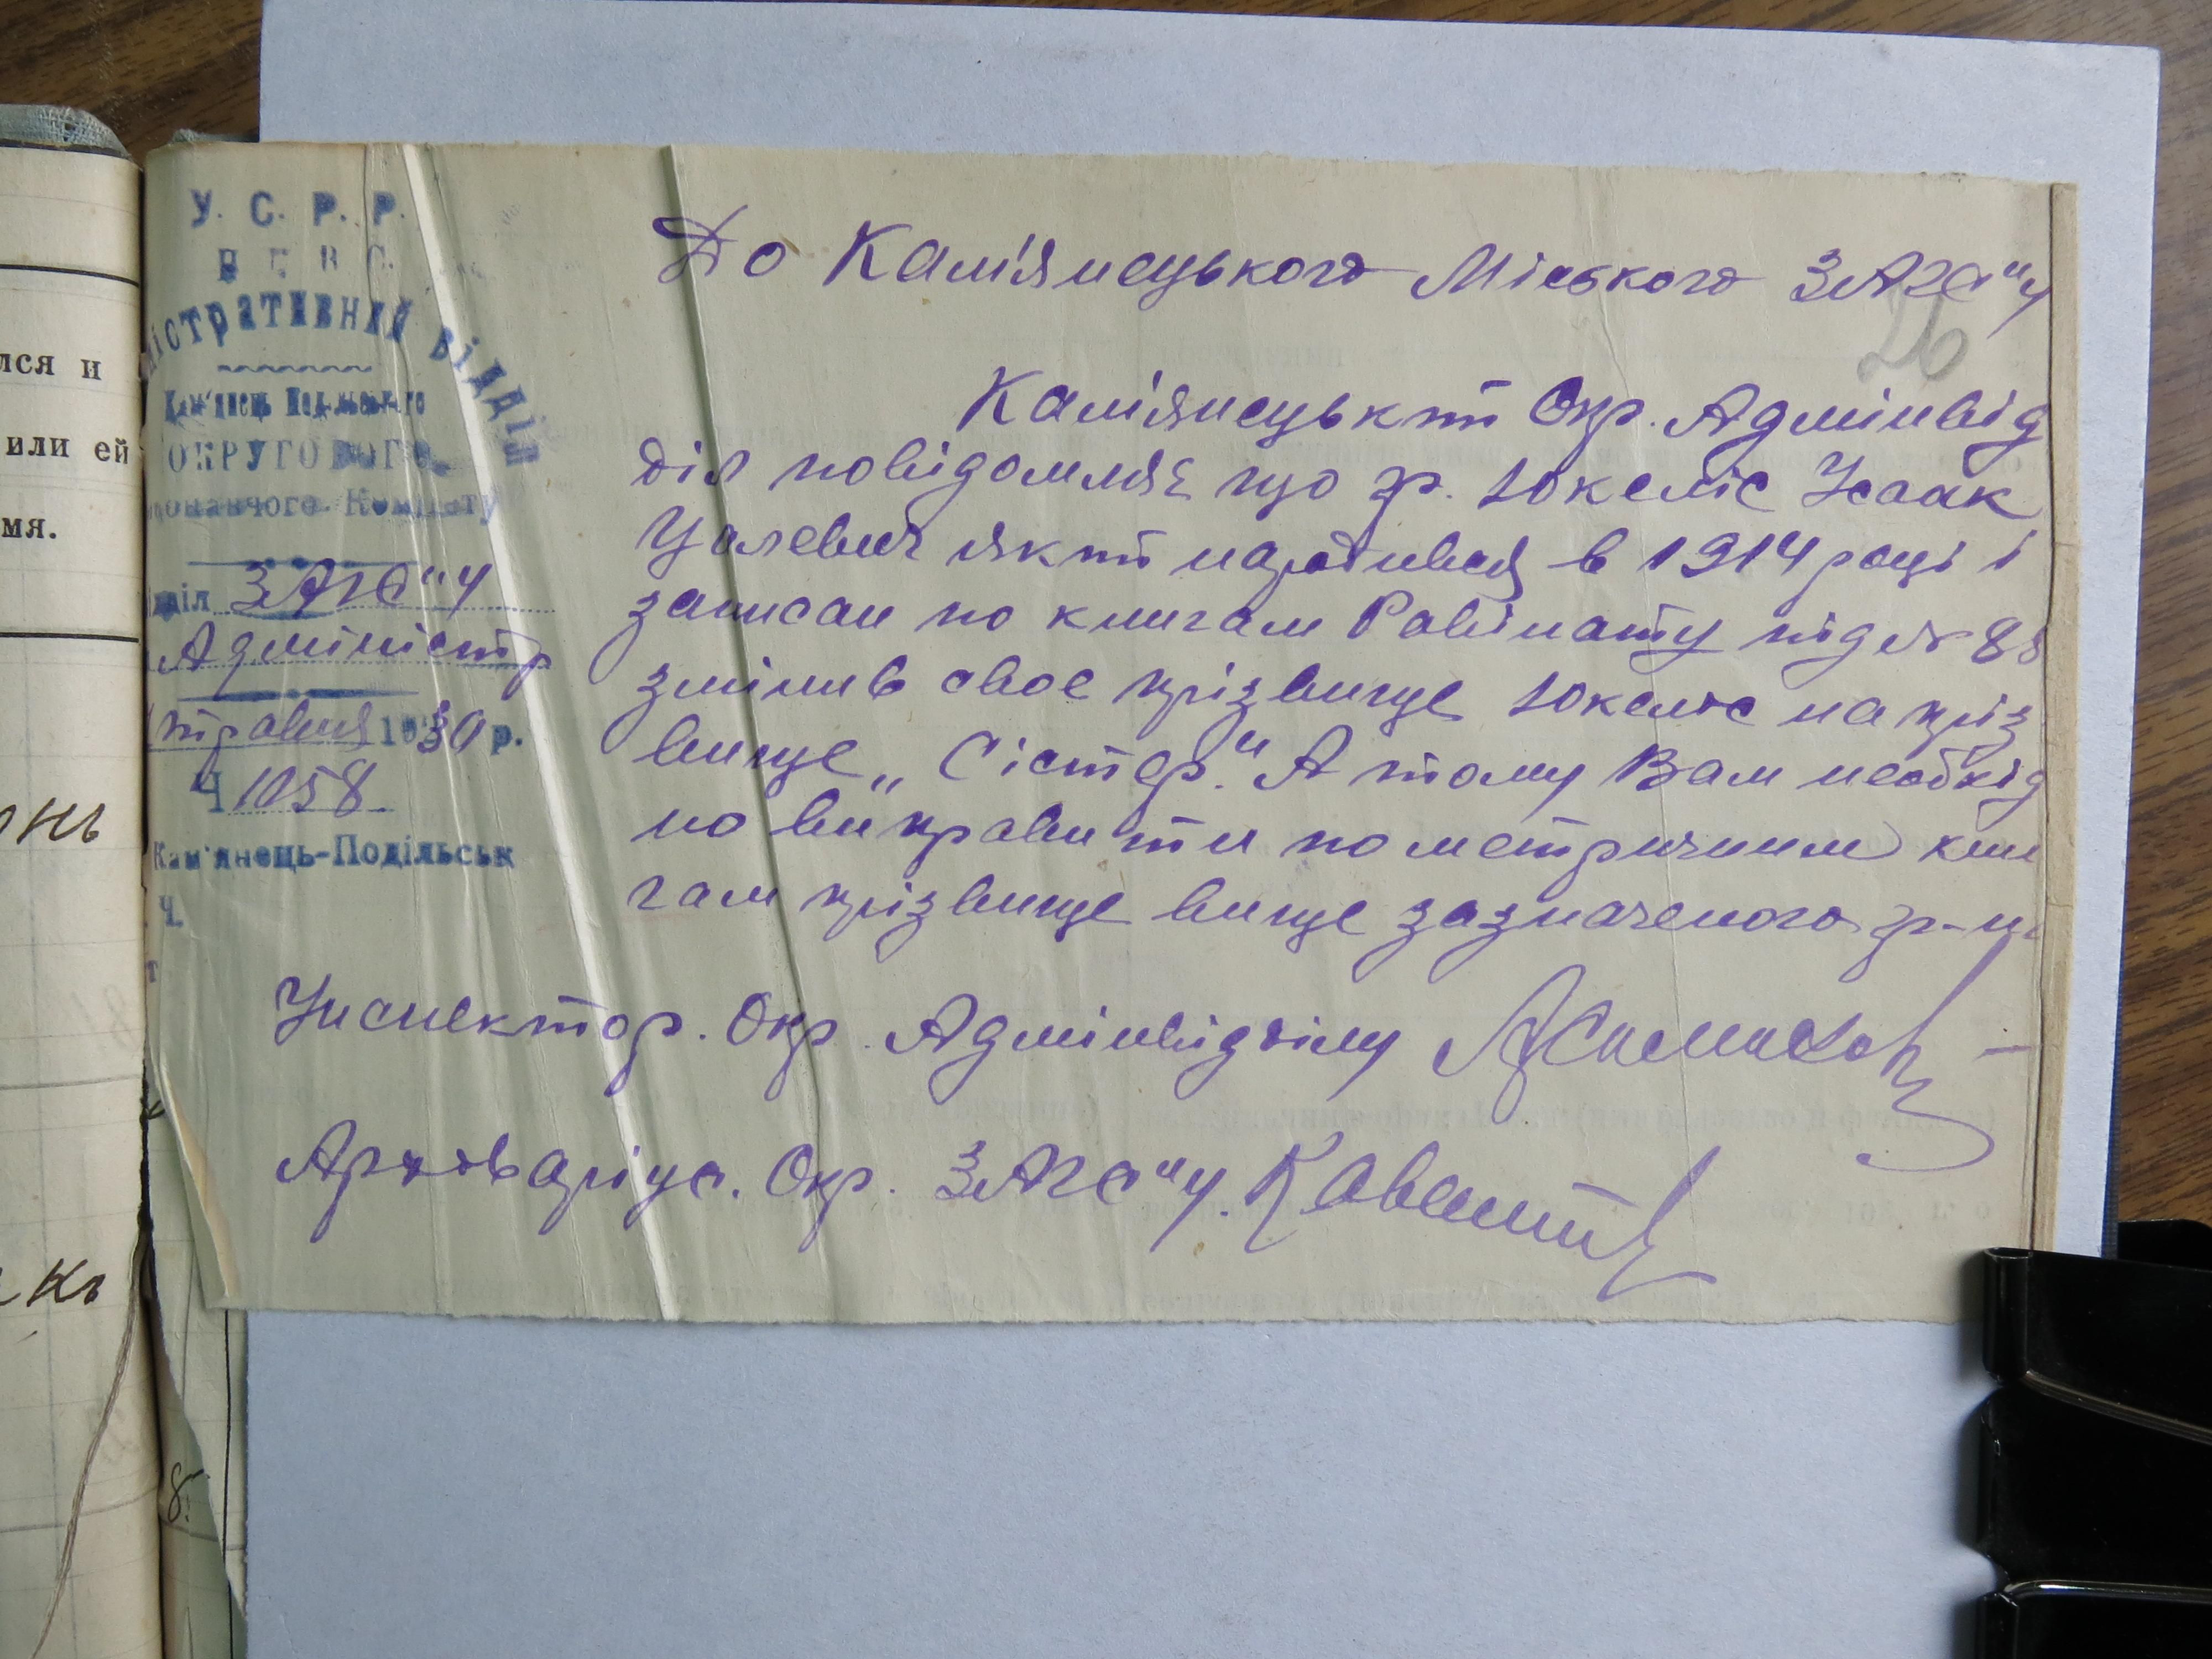 У. С. Р. Р.
Н К В С.
містративний відділ
Кам'янець Подільського
ОКРУГОВОГО
конавчого Комітету
діл ЗАГС"у
Адміністр
травня 1930 р.
Ч 1058.
Кам'янець-Подільськ
Ч.
До Кам'янецького Міського ЗАГС"у
26
Кам'янецький Окр. Адмінвід
діл повідомляє що гр. Юкеліс Исаак
Цолевич який народився в 1914 році і
записан по книгам Равінату під № 88
змінив своє прізвище Юкеліс на пріз
вище „Сістер." А тому Вам необхід
но виправити по метричним кни
гам прізвище вище зазначеного гр-на
Инспектор. Окр. Адмінвідділу
Архіваріус. Окр. ЗАГС"у.
лся и
или ей
мя.
нь
къ
8.